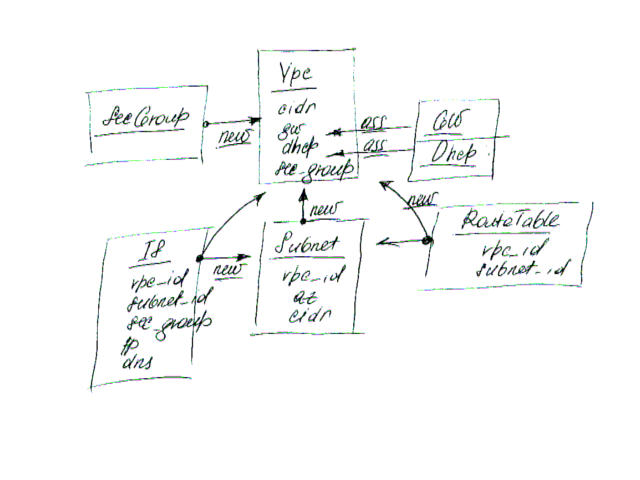 Vpc
cidr
gw
dhcp
sec_group
SecGroup
new
ass
ass
GW
Dhcp
new
new
RouteTable
vpc_id
subnet_id
IS
vpc_id
subnet_id
sec_group
ip
dns
new
Subnet
vpc_id
az
cidr